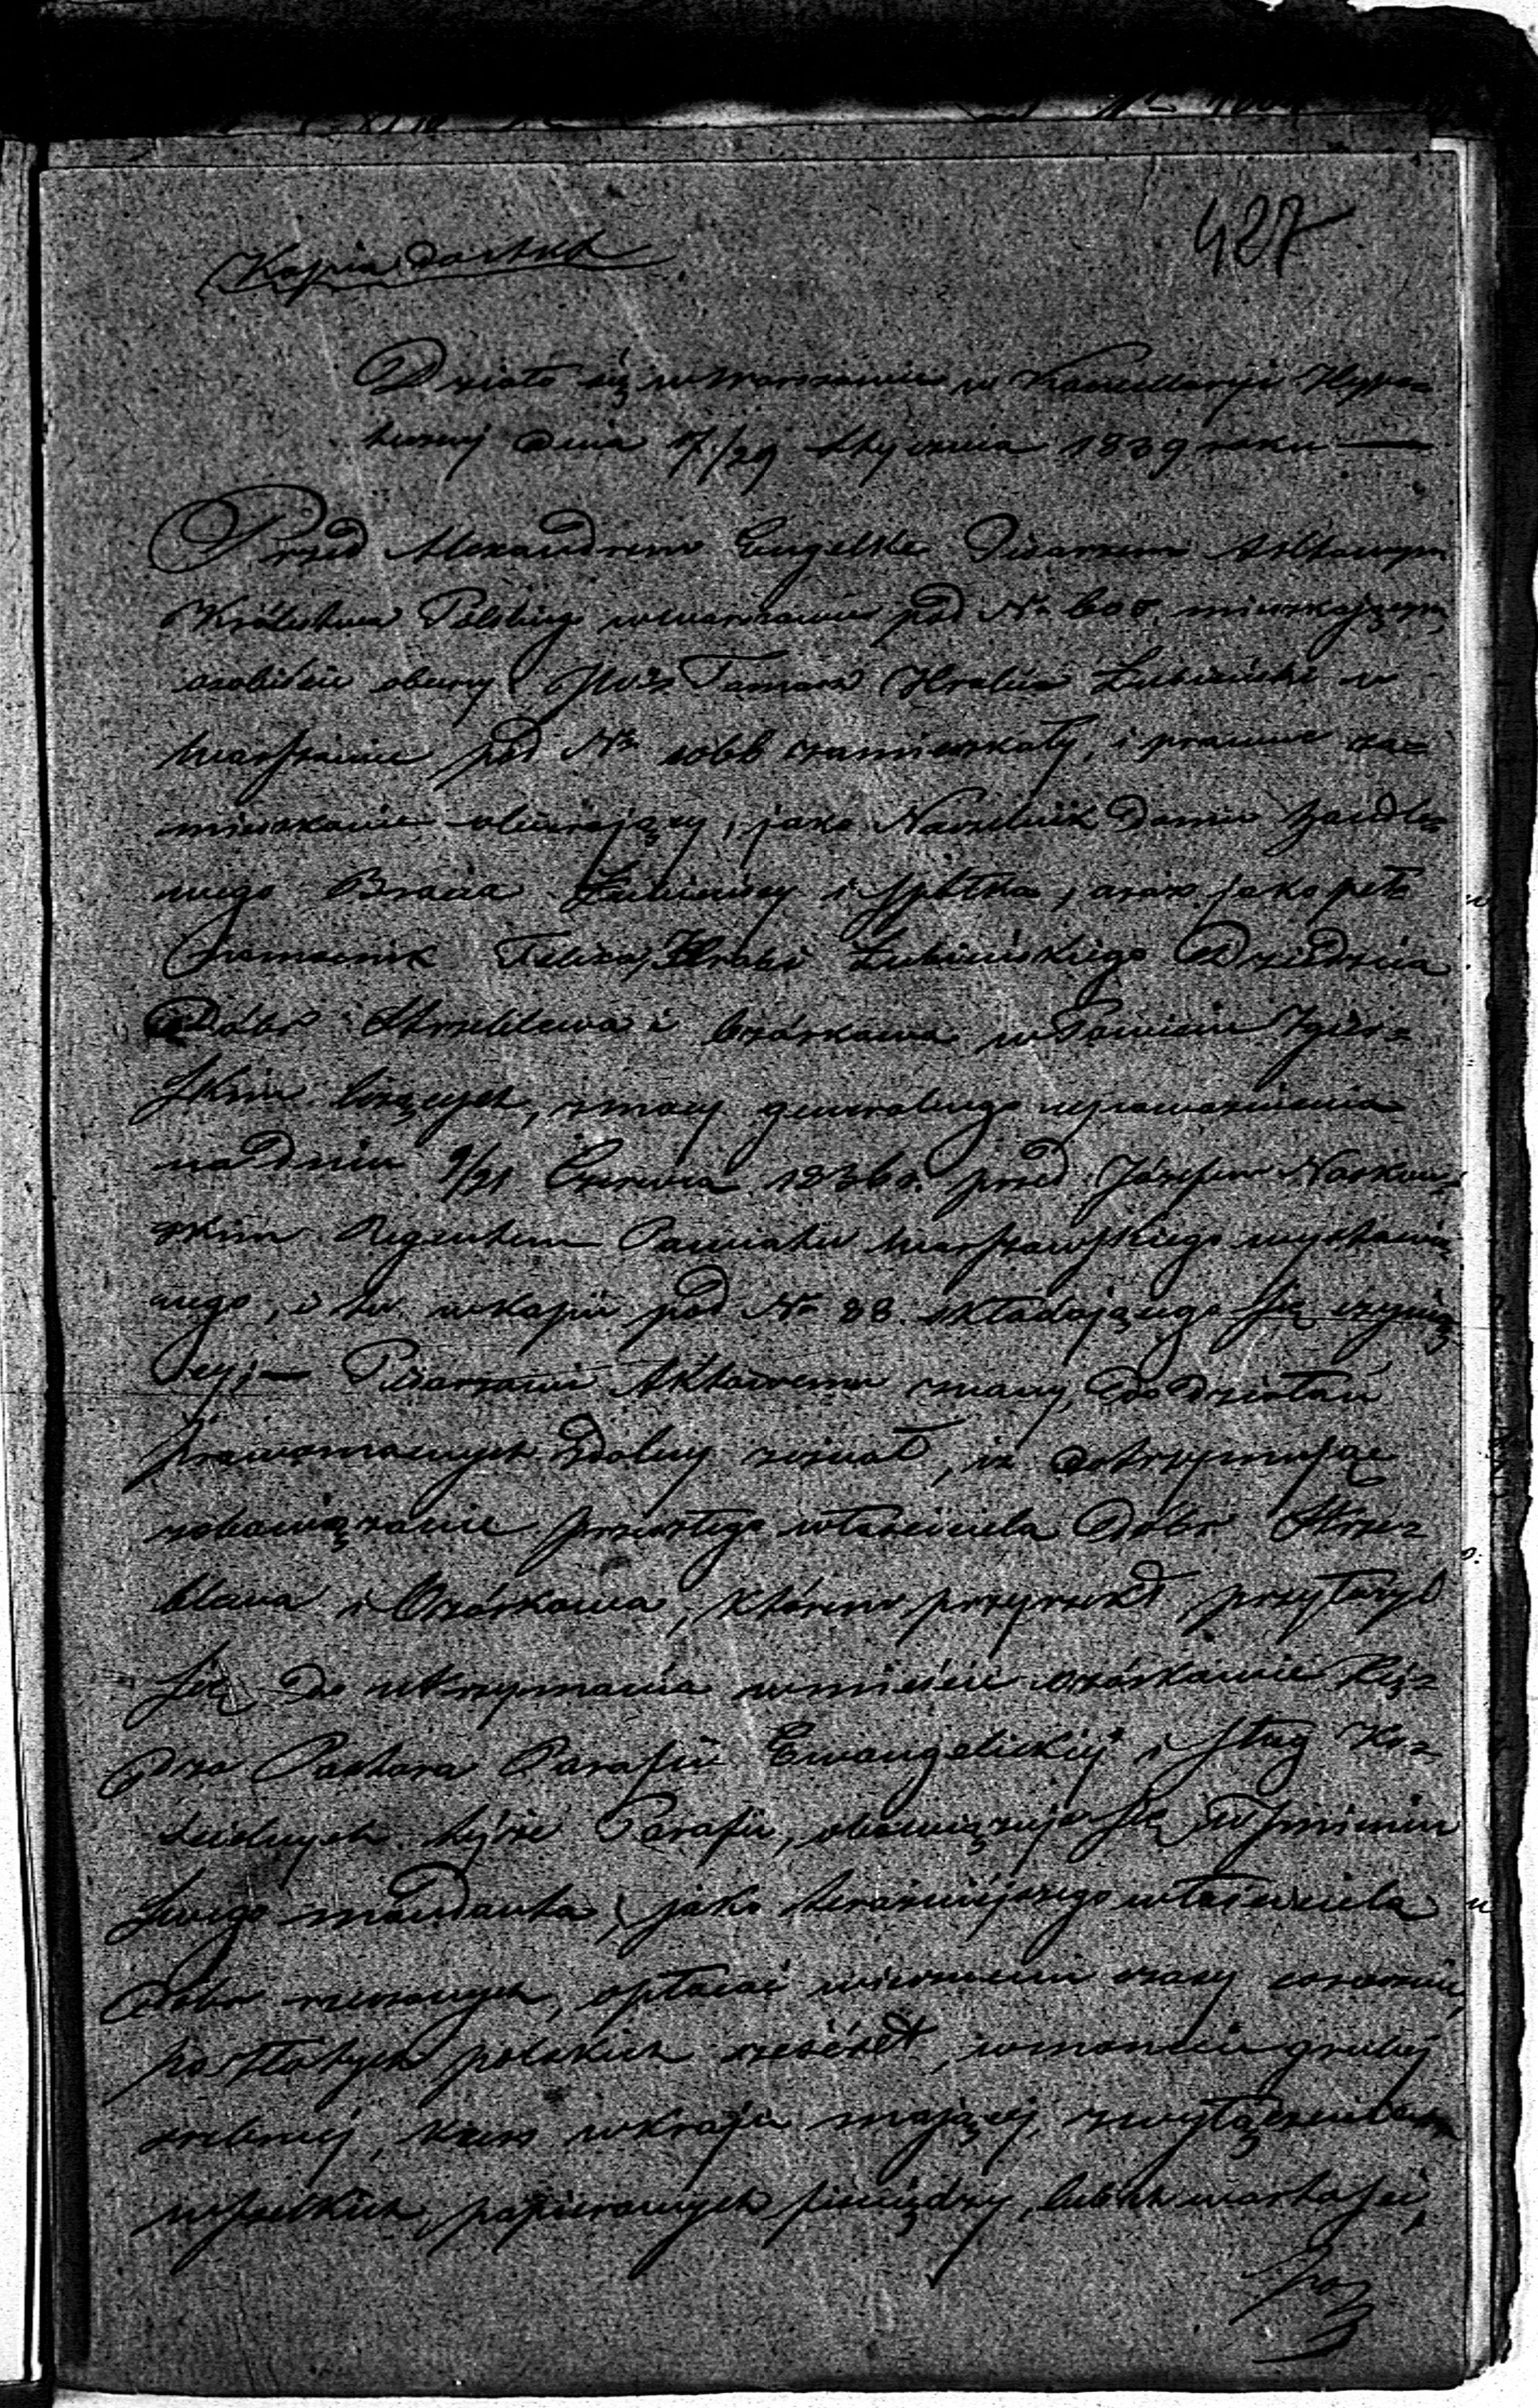 427
Kopia do akt
Działo się w Warszawie w Kancellaryi Hypo=
tecznej dnia 17/29 Stycznia 1839 roku —
Przed Alexandrem Engelke Pisarzem Aktowym
Królestwa Polskiego w Warszawie pod No 600. mieszkającym,
osobiście obecny Tomasz Hrabia Łubieński w
Warszawie pod No zamieszkały, i prawne za=
mieszkanie obierający, jako Naczelnik Domu handlo=
wego Bracia Łubieńscy i Spółka, oraz jako peł=
nomocnik Felixa Hrabi Łubieńskiego Dziedzica
Dóbr Strzeblewa i Ozórkowa w Powiecie Zgier=
skim leżących, z mocy generalnego upoważnienia
na dniu 9/21 Czerwca 1836 r. przed Józefem Noskow=
skim Regentem Powiatu Warszawskiego wystawio=
nego, i tu w kopii pod No 88. składającego się czynią=
cy; — Pisarzowi Aktowemu znany, do działań
prawomocnych zdolny zeznał, iż dotrzymując
zobowiązanie przeszłego właściciela Dóbr Strze=
blewa i Ozórkowa, którem przyrzekł przyłożyć
się do utrzymania w mieście Ozórkowie Xię=
dza Pastora Parafii Ewangelickiej i sług Ko=
ścielnych tejże Parafii, obowiązuje się w Imieniu
swego mandanta, jako teraźniejszego właściciela
Dóbr rzeczonych, opłacać wiecznemi czasy corocznie,
po złotych polskich sześćset, w monecie grubej
srebrnej, kurs w kraju mającej, z wyłączeniem
wszelkich papierowych pieniędzy, lub ich wartości,
po=